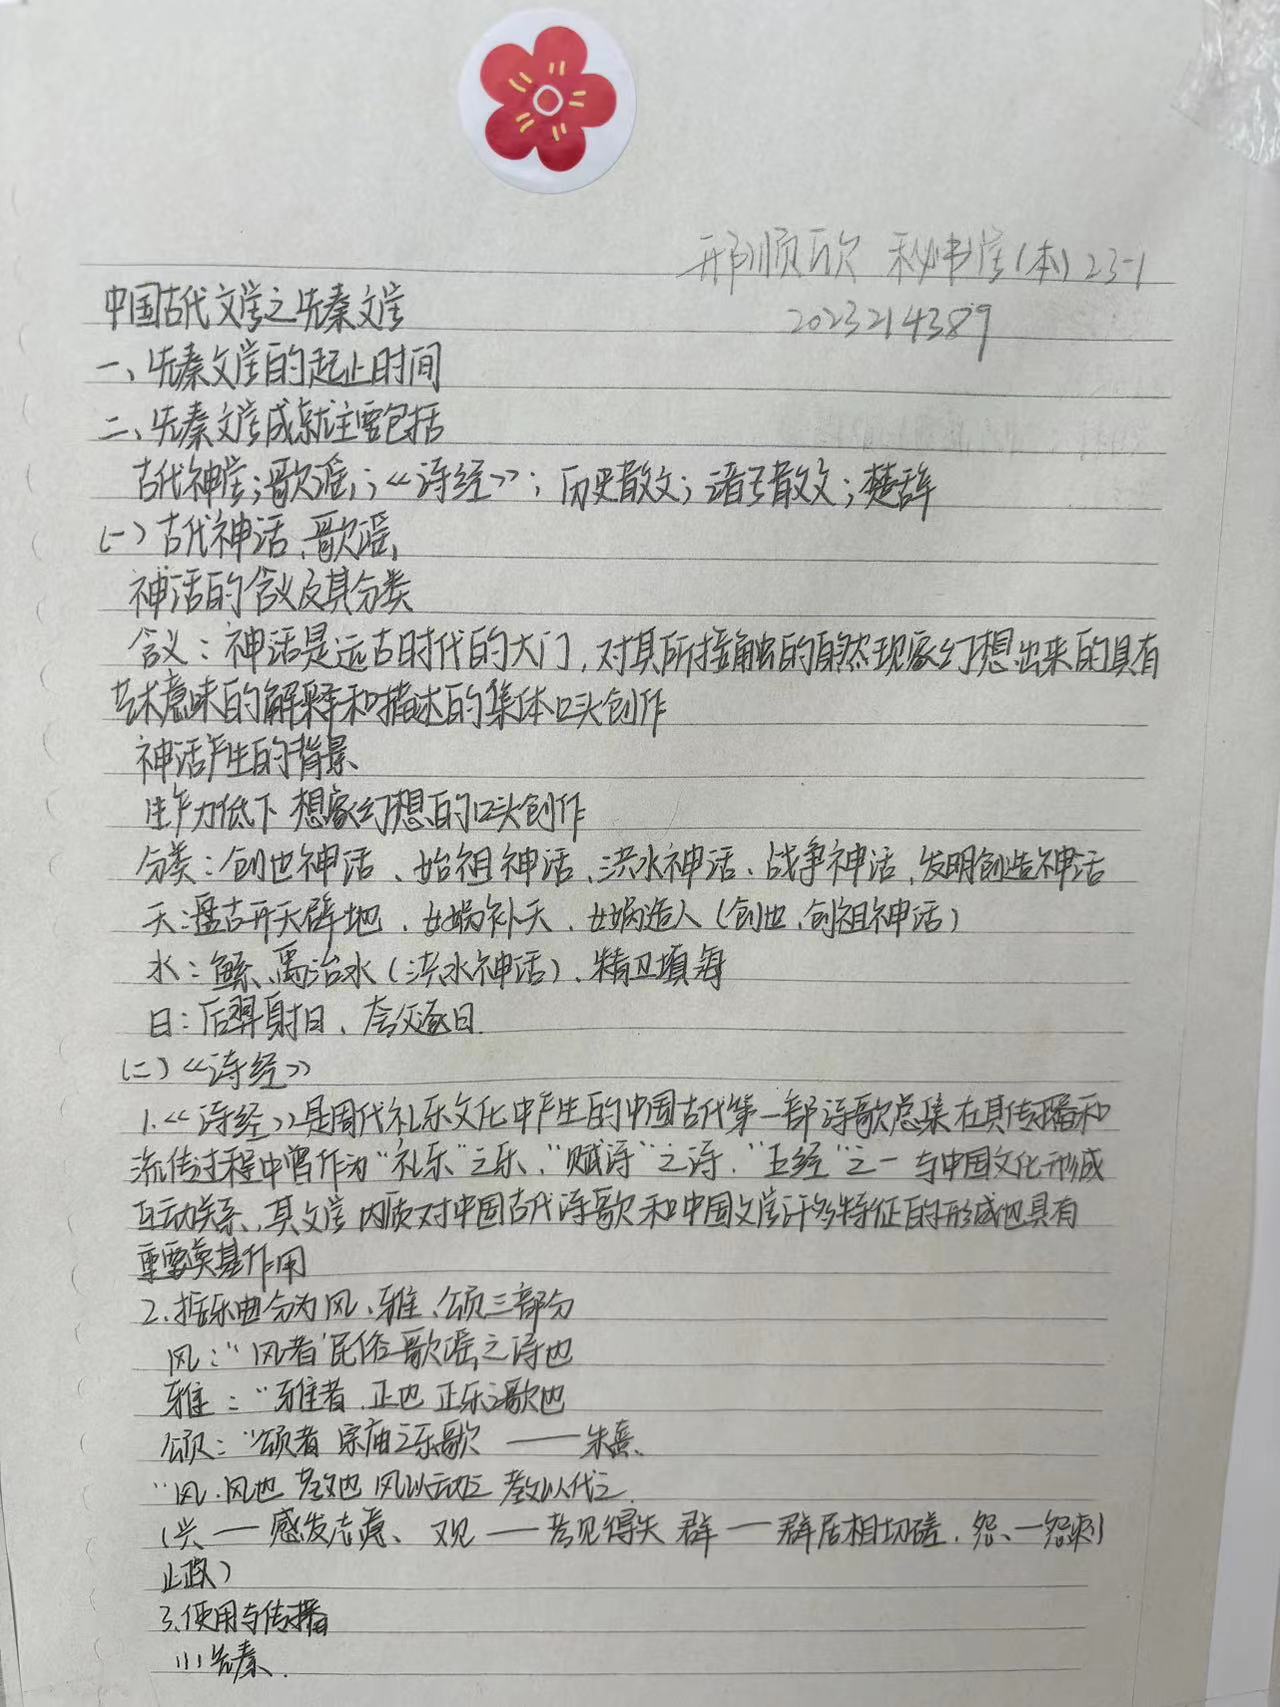 邢顺欣 秘书学(本)23-1
2023214389
中国古代文学之先秦文学
一、先秦文学的起止时间
二、先秦文学成就主要包括
古代神学；歌谣；《诗经》；历史散文；诸子散文；楚辞
(一)古代神话、歌谣
神话的含义及其分类
含义：神话是远古时代的大门，对其所接触的自然现象幻想出来的具有
艺术意味的解释和描述的集体口头创作
神话产生的背景
生产力低下 想象幻想的口头创作
分类：创世神话、始祖神话、洪水神话、战争神话、发明创造神话
天：盘古开天辟地、女娲补天、女娲造人(创世、创祖神话)
水：鲧、禹治水(洪水神话)、精卫填海
日：后羿射日、夸父逐日
(二)《诗经》
1.《诗经》是周代礼乐文化中产生的中国古代第一部诗歌总集在其传播和
流传过程中曾作为"礼乐"之乐，"赋诗"之诗，"五经"之一 与中国文化形成
互动关系、其文学内质对中国古代诗歌和中国文学许多特征的形成也具有
重要奠基作用
2.按乐曲分为风、雅、颂三部分
风："风者 民俗歌谣之诗也
雅："雅者、正也 正乐之歌也
颂："颂者 宗庙之乐歌 ——朱熹
"风、风也 教也 风以动之 教以化之
(兴——感发志意、观——考见得失 群——群居相切磋、怨、—怨刺
上政)
3.使用与传播
(1)先秦、